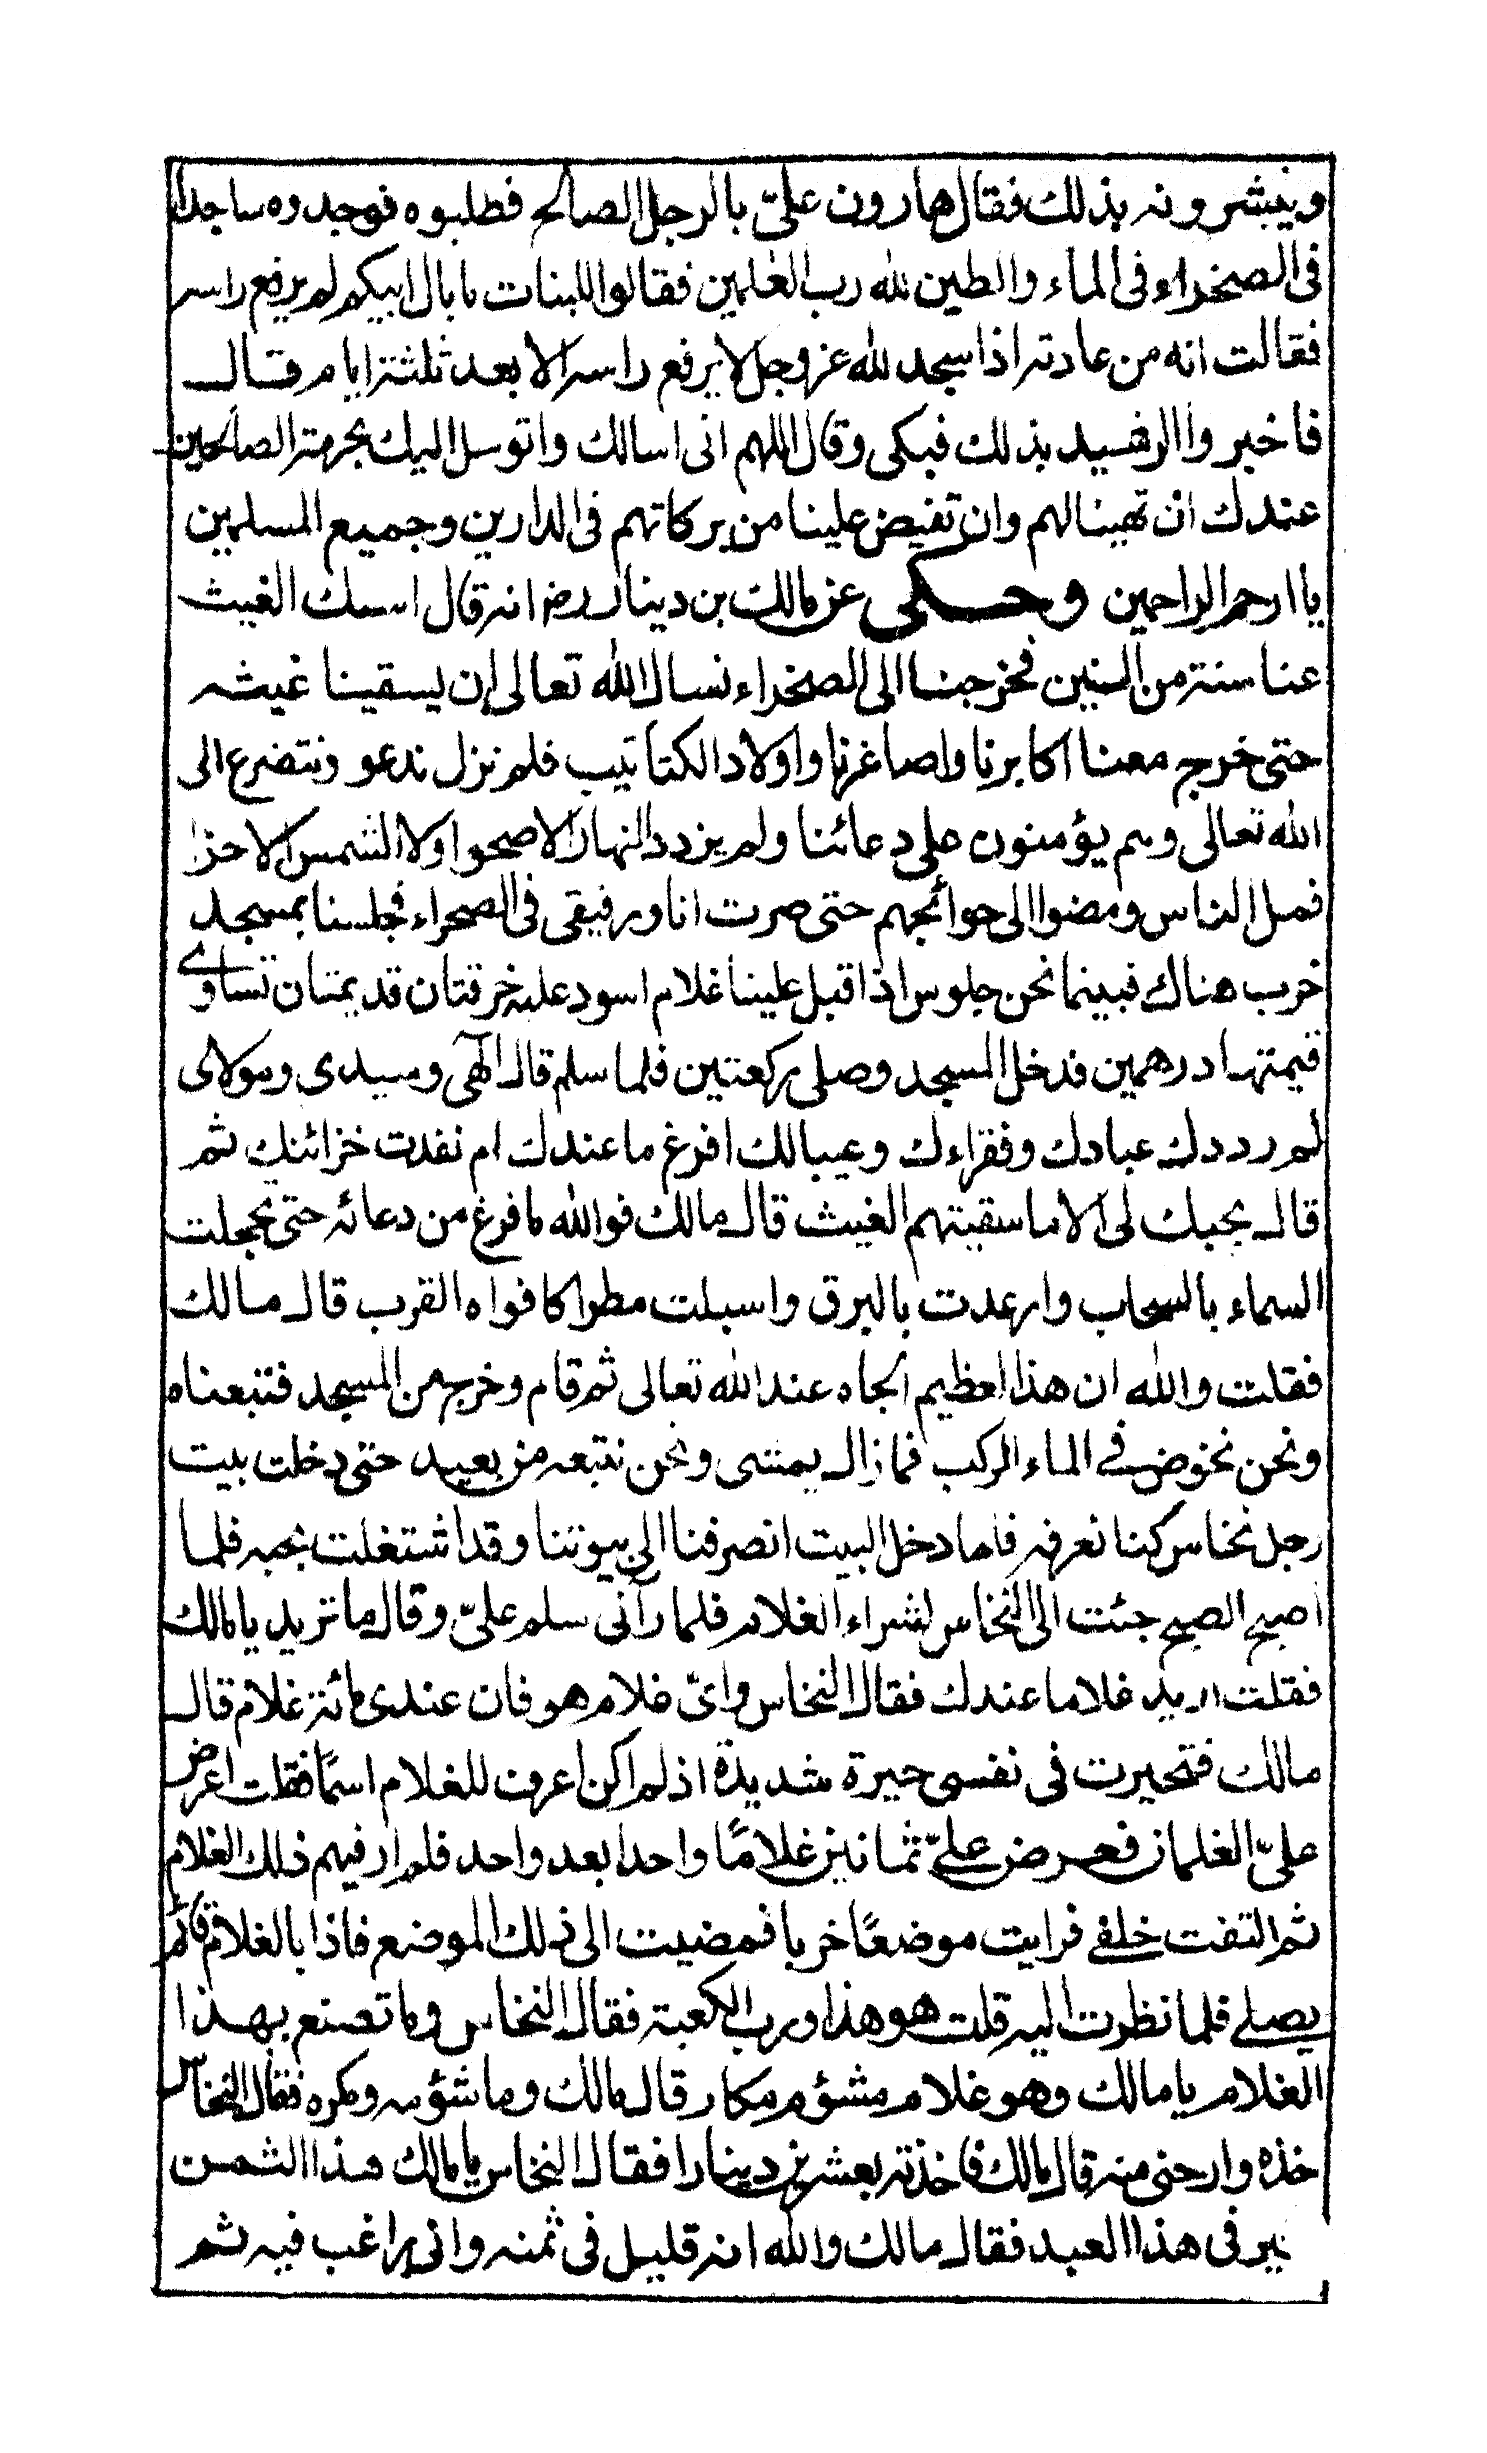 ويبشرونه بذلك فقال هارون عليّ بالرجل الصالح فطلبوه فوجدوه ساجدا
فى الصخراء فى الماء والطين لله رب العلمين فقالوا للبنات ما بال ابيكم لم يرفع راسه
فقالت انه من عادته اذا سجد لله عز وجل لا يرفع راسه الا بعد ثلثة ايام قال
فاخبروا الرشيد بذلك فبكى وقال اللهم انى اسالك واتوسل اليك بحرمة الصالحين
عندك ان تهبنا لهم وان تفيض علينا من بركاتهم فى الدارين وجميع المسلمين
يا ارحم الراحمين وحكى عن مالك بن دينار رضـ انه قال امسك الغيث
عنا سنة من السنين فخرجنا الى الصخراء نسال الله تعالى ان يسقينا غيثه
حتى خرج معنا اكابرنا واصاغرنا واولاد الكتاتيب فلم نزل ندعو ونتضرع الى
الله تعالى وهم يؤمنون على دعائنا ولم يزدد النهار الا صحوا ولا الشمس الا حرا
فمل الناس ومضوا الى حوائجهم حتى صرت انا ورفيقى فى الصحراء فجلسنا بمسجد
خرب هناك فبينما نحن جلوس اذا اقبل علينا غلام اسود عليه خرقتان قديمتان تساوى
قيمتهما درهمين فدخل المسجد وصلى ركعتين فلما سلم قال الٓهى وسيدى ومولاى
لم رددك عبادك وفقراءك وعيالك افرغ ما عندك ام نفدت خزائنك ثم
قال بحبك لى الا ما سقيتهم الغيث قال مالك فوالله ما فرغ من دعائه حتى تجعلت
السماء بالسحاب وارعدت بالبرق واسبلت مطرا كافواه القرب قال مالك
فقلت والله ان هذا لعظيم الجاه عند الله تعالى ثم قام وخرج من المسجد فتبعناه
ونحن نخوض فى الماء الركب فما زال يمشى ونحن نتبعه من بعيد حتى دخلت بيت
رجل نخاس كنا نعرفه فلما دخل البيت انصرفنا الى بيوتنا وقد اشتغلت بحبه فلما
اصبح الصبح جئت الى النخاس لشراء الغلام فلما رآنى سلم عليّ وقال ما تريد يا مالك
فقلت اريد غلاما عندك فقال النخاس وايّ غلام هو فان عندى مائة غلام قال
مالك فتحيرت فى نفسى حيرة شديدة اذ لم اكن اعرف للغلام اسمًا فقلت اعرض
عليّ الغلمان فعرض عليّ ثمانين غلامًا واحدا بعد واحد فلم ار فيهم ذلك الغلام
ثم التفت خلفى فرايت موضعًا خربا فمضيت الى ذلك الموضع فاذا بالغلام قائم
يصلى فلما نظرت اليه قلت هو هذا ورب الكعبة فقال النخاس وما تصنع بهذا
الغلام يا مالك وهو غلام مشؤم مكار قال مالك وما شؤمه ومكره فقال النخاس
خذه وارحنى منه قال مالك فاخذته بعشرين دينارا فقال النخاس يا مالك هذا الثمن
فى هذا العبد فقال مالك والله انه قليل فى ثمنه وانى راغب فيه ثم